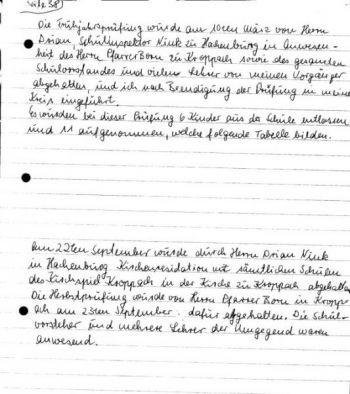 Seite 38)
Die Frühjahrsprüfung wurde am 10ten März von Herrn
Dekan Schulinspektor Nink zu Hachenburg in Anwesen-
heit des Herrn Pfarrer Born zu Kroppach sowie des gesamten
Schulvorstandes und vielen Lehrer von meinen Vorgänger
abgehalten, und ich nach Beendigung der Prüfung in meine
Kreis eingeführt.
Es wurden bei dieser Prüfung 6 Kinder aus der Schule entlassen
und 11 aufgenommen, welche folgende Tabelle bilden.
Am 22ten September wurde durch Herrn Nink
in Hachenburg Kirchenvisidation mit sämtlichen Schulen
des Kirchspiel Kroppach in der Kirche zu Kroppach abgehalten
Die Herbstprüfung wurde von Herrn Pfarrer Born in Kropp-
ach am 23ten September. dafür abgehalten. Die Schul-
vorsteher und mehrere Lehrer der Umgegend waren
anwesend.